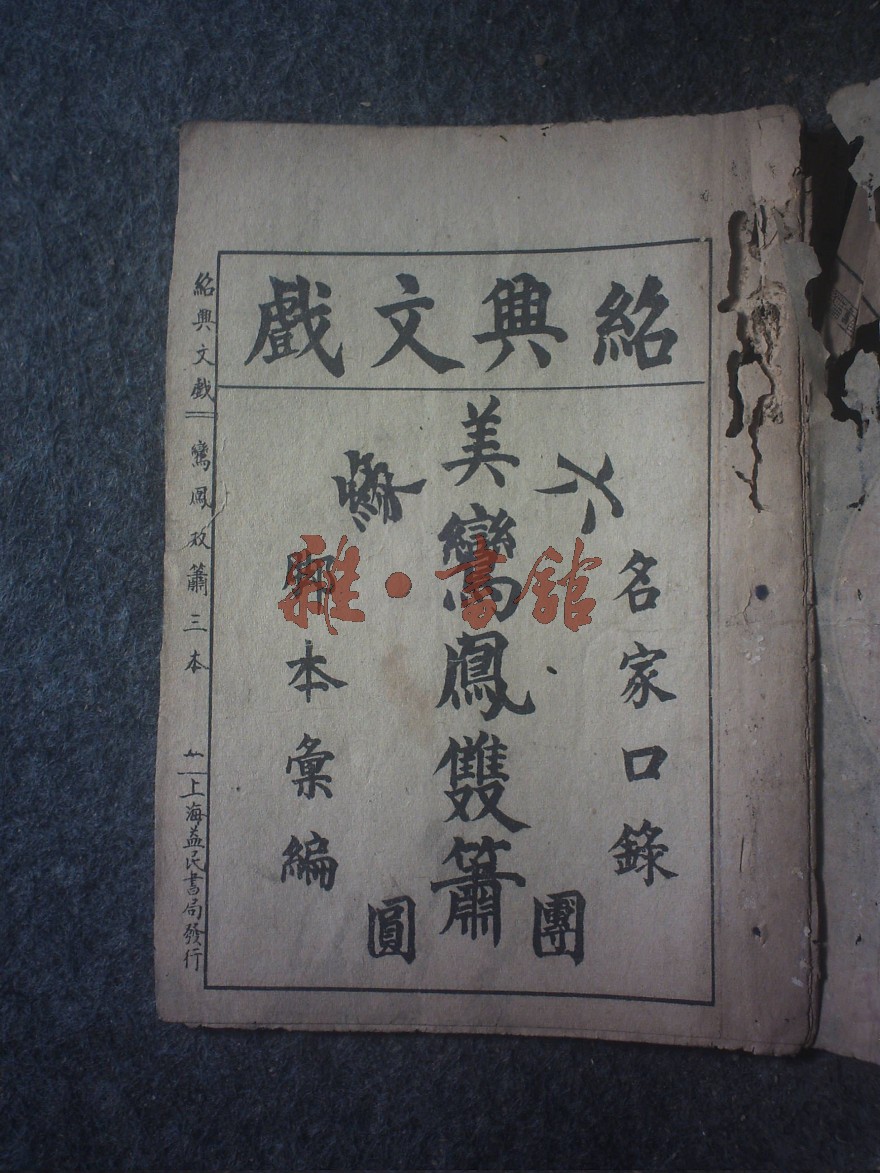 紹興文戲
名家口錄
美鸞鳳雙簫
團圓
脚本彙編
紹興文戲
鸞鳳双簫三本
上海益民書局發行
雜·書館